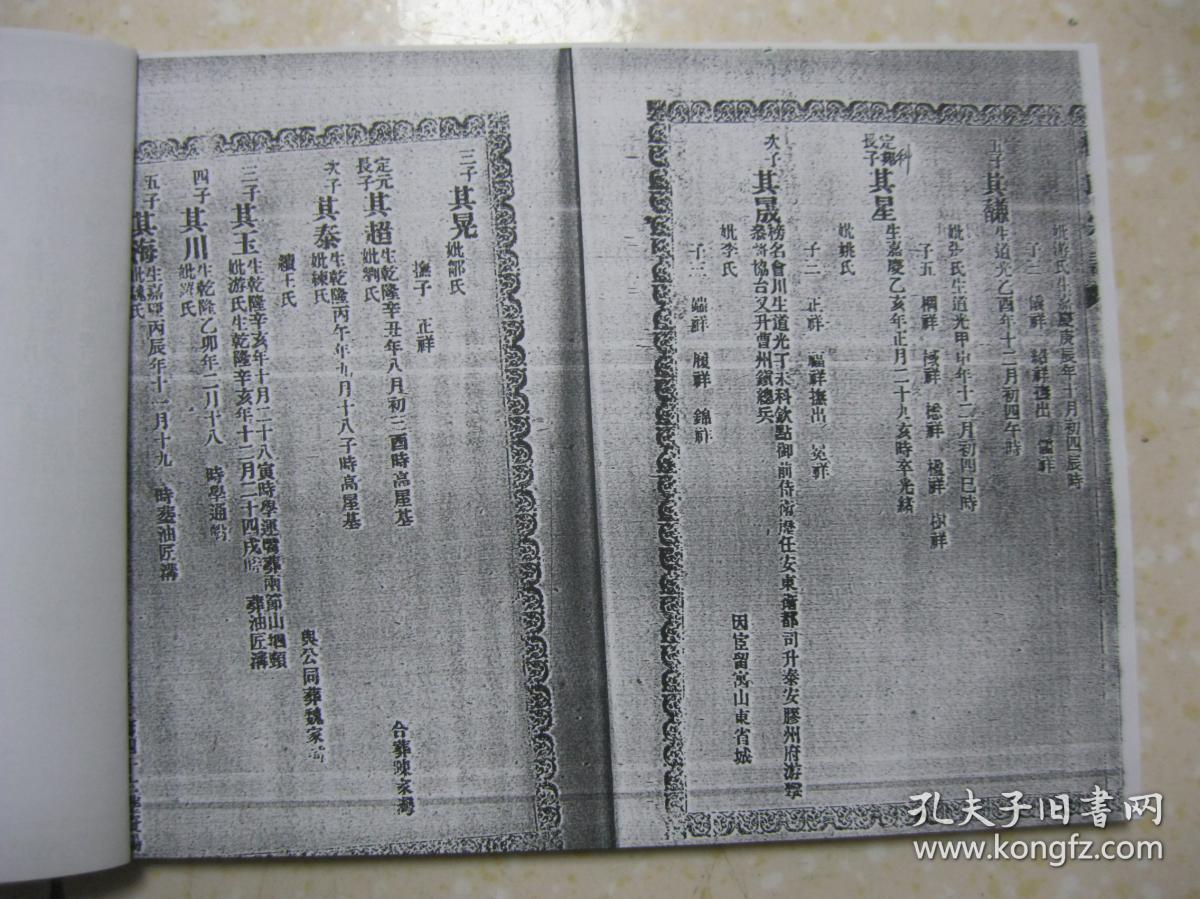 妣游氏生嘉慶庚辰年十月初四辰時
子三 儀祥 紹祥撫出
五子其謙生道光乙酉年十二月初四午時
妣張氏生道光甲申年十二月初四巳時
子五 桐祥 極祥 松祥 楹祥
定鄉
科
長子其星生嘉慶乙亥年正月二十九亥時卒光緒
妣姚氏
子二 正祥 福祥撫出 冕祥
次子其晟榜名會川生道光丁未科欽點御前侍衛澄任安東衛都司升泰安膠州府游擊
叅將協台又升曹州鎮總兵
因宦留寓山東省城
妣李氏
子三 端祥 履祥 錦祥
三子其晃妣鄒氏
撫子 正祥
定元
長子其超生乾隆辛丑年八月初三酉時高屋基
妣劉氏
合葬陳家灣
次子其泰生乾隆丙午年九月十八子時高屋基
妣練氏
與公同葬魏家
續王氏
三子其玉生乾隆辛亥年十月二十八寅時學運葬兩節山堌頸
妣游氏生乾隆辛亥年十二月二十四戌時 葬油匠溝
四子其川生乾隆乙卯年二月十八 時學通
五子其海生嘉慶丙辰年十一月十九 時葬油匠溝
妣魏氏
孔夫子旧書网
www.kongfz.com